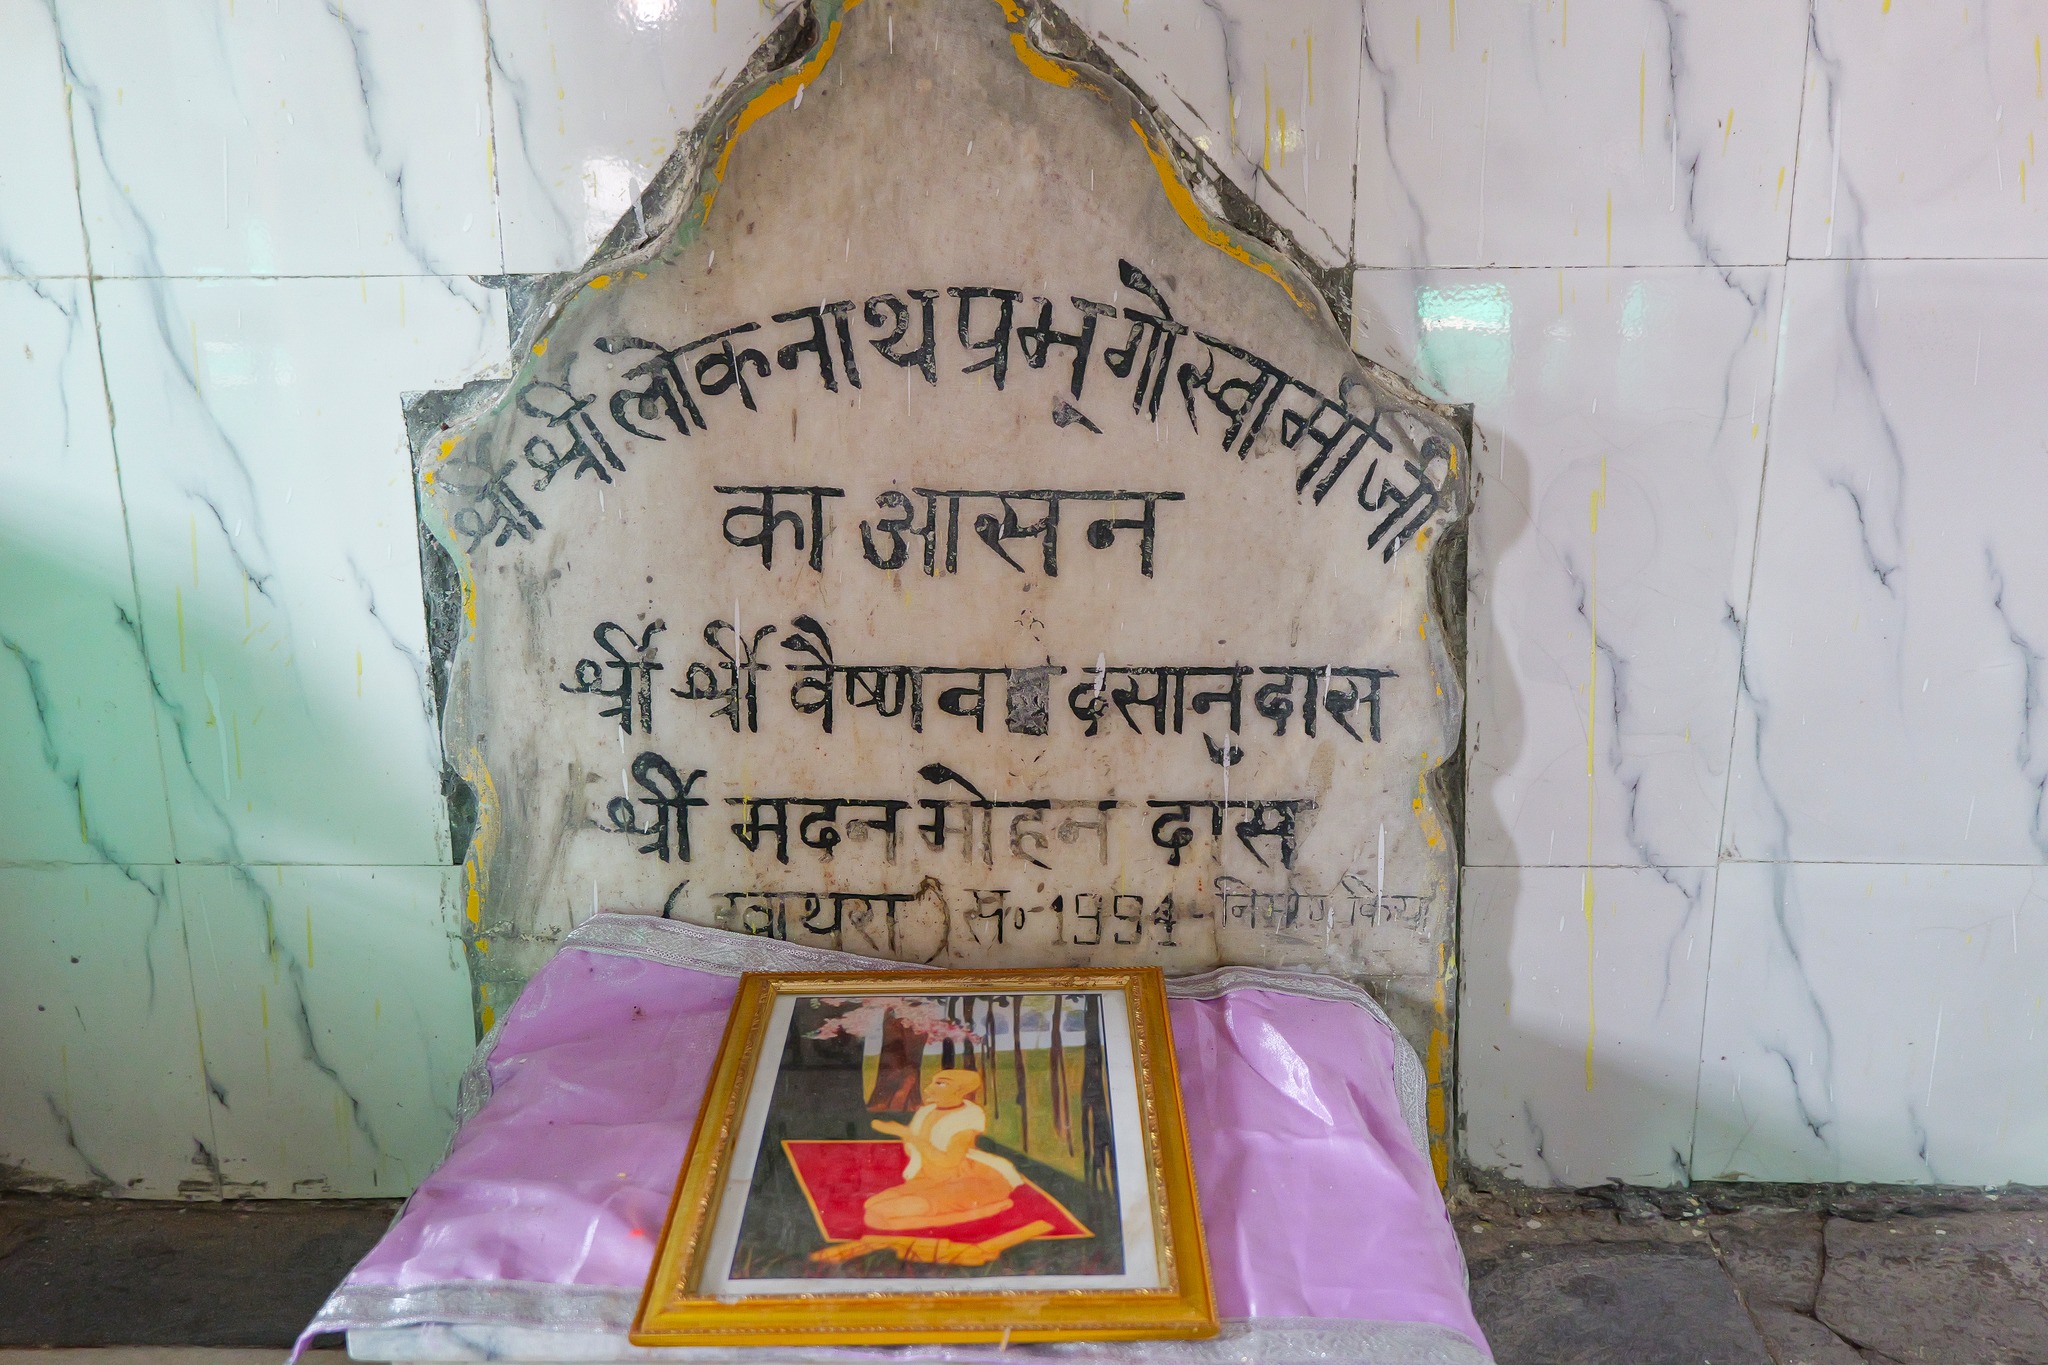 श्री श्री लोकनाथ प्रभू गौस्वामी जी
का आसन
श्री श्री वैष्णव दसानुदास
श्री मदन मोहन दास
(खाथरा) स॰ 1994 निर्माण किया